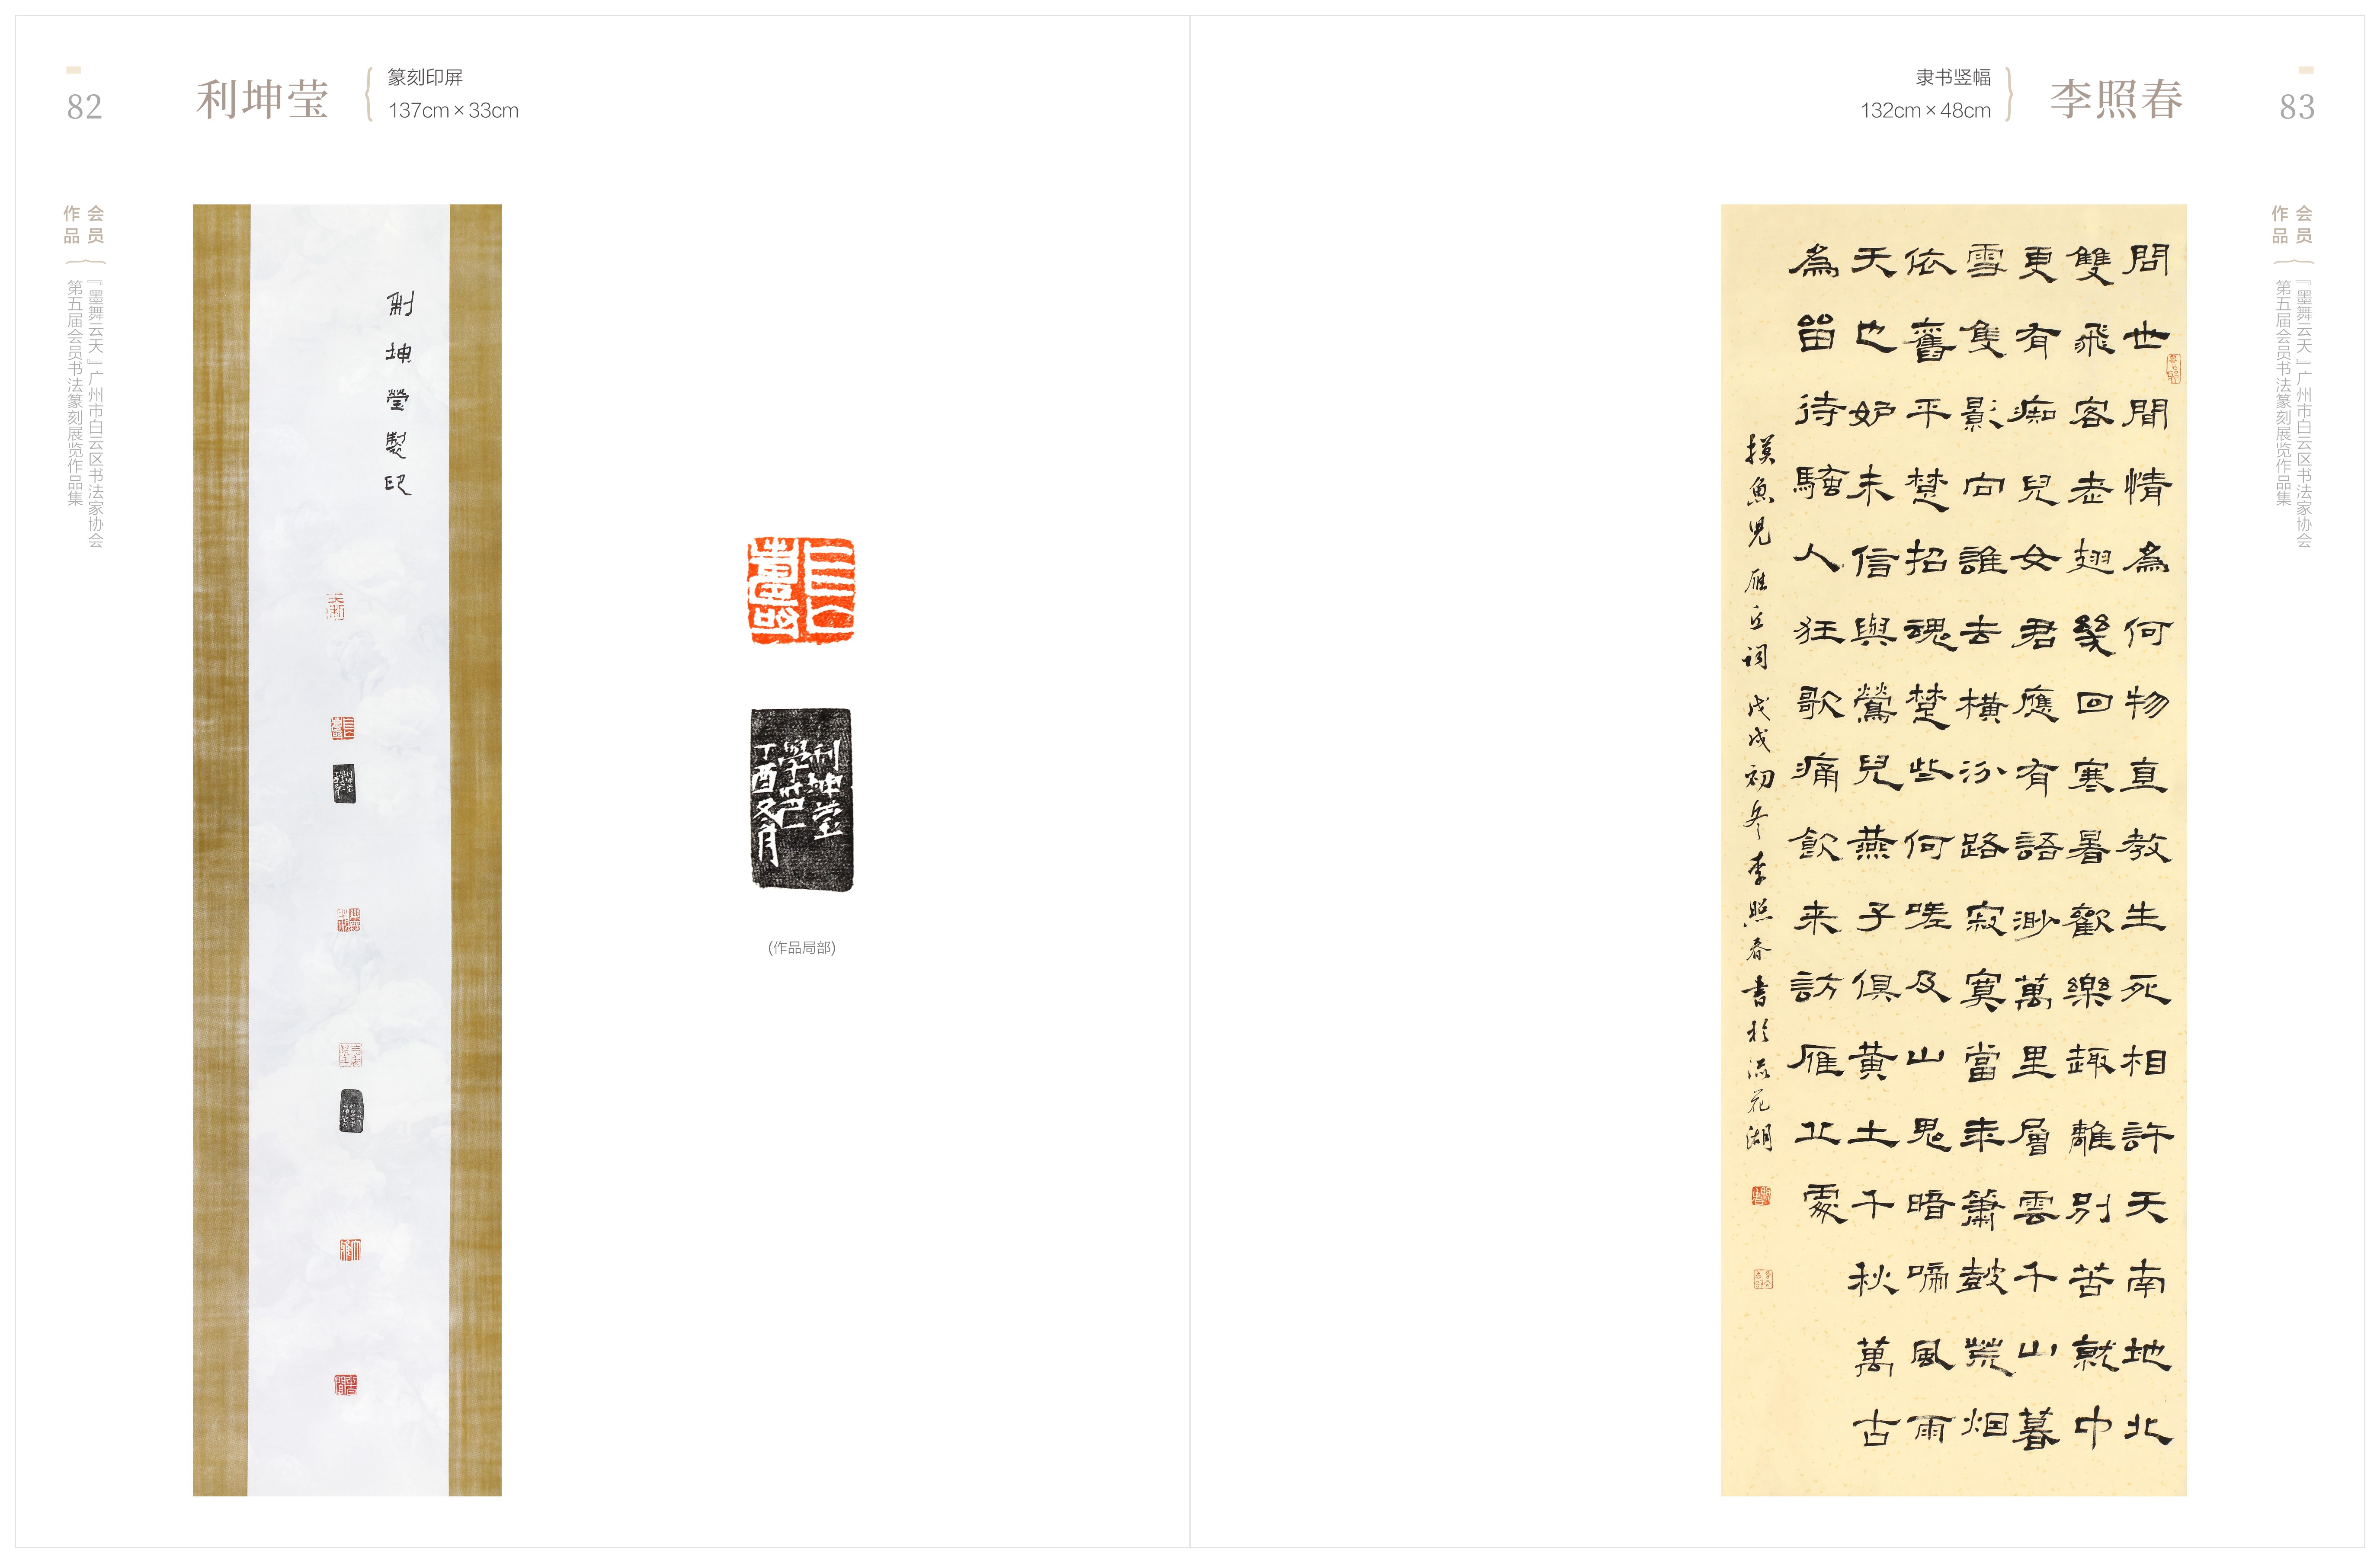 82
利坤莹
篆刻印屏
137cm×33cm
会员
作品
『墨舞云天』广州市白云区书法家协会
第五届会员书法篆刻展览作品集
利坤瑩製印
利坤莹
丁酉冬月
(作品局部)
隶书竖幅
132cm×48cm
李照春
83
会员
作品
『墨舞云天』广州市白云区书法家协会
第五届会员书法篆刻展览作品集
問世間情為何物直教生死相許天南地北
雙飛客老翅幾回寒暑歡樂趣離別苦就中
更有痴兒女君應有語渺萬里層雲千山暮
雪隻影向誰去橫汾路寂寞當年簫鼓荒烟
依舊平楚招魂楚些何嗟及山鬼暗啼風雨
天也妒未信與鶯兒燕子俱黃土千秋萬古
為留待騷人狂歌痛飲来訪雁丘處
摸魚兒 雁丘詞 戊戌初冬李照春書於流花湖